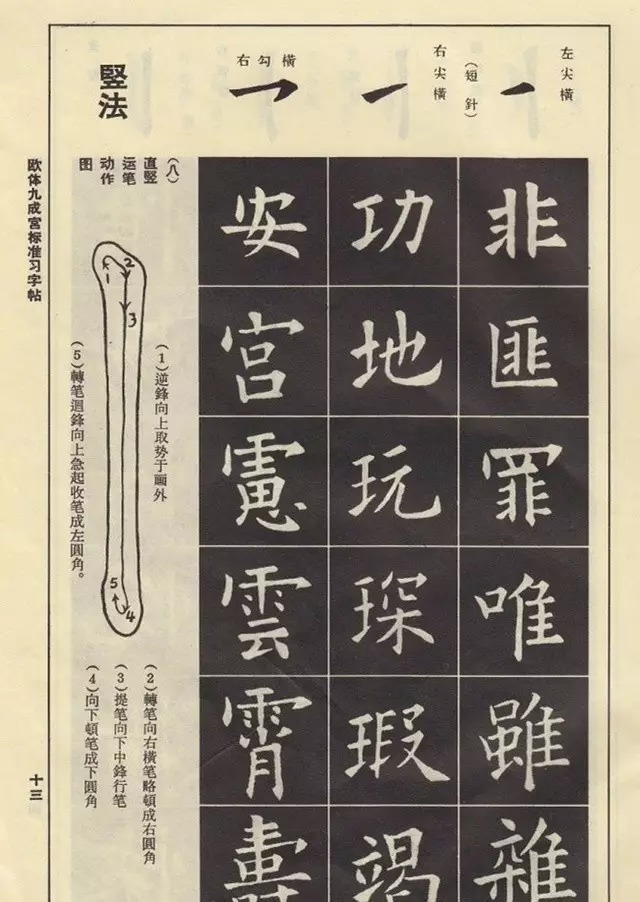 左尖橫
（短針）
右尖橫
右勾橫
非匪罪唯雖雜
功地玩琛瑕竭
安宮憲雲霄
竪法
（八）
直竪
运笔
动作
图
1
2
3
4
5
（1）逆鋒向上取势于画外
（5）轉笔迴鋒向上急起收笔成左圓角。
（2）轉笔向右橫笔略頓成右圓角
（3）提笔向下中鋒行笔
（4）向下頓笔成下圓角
欧体九成宫标准习字帖
十三